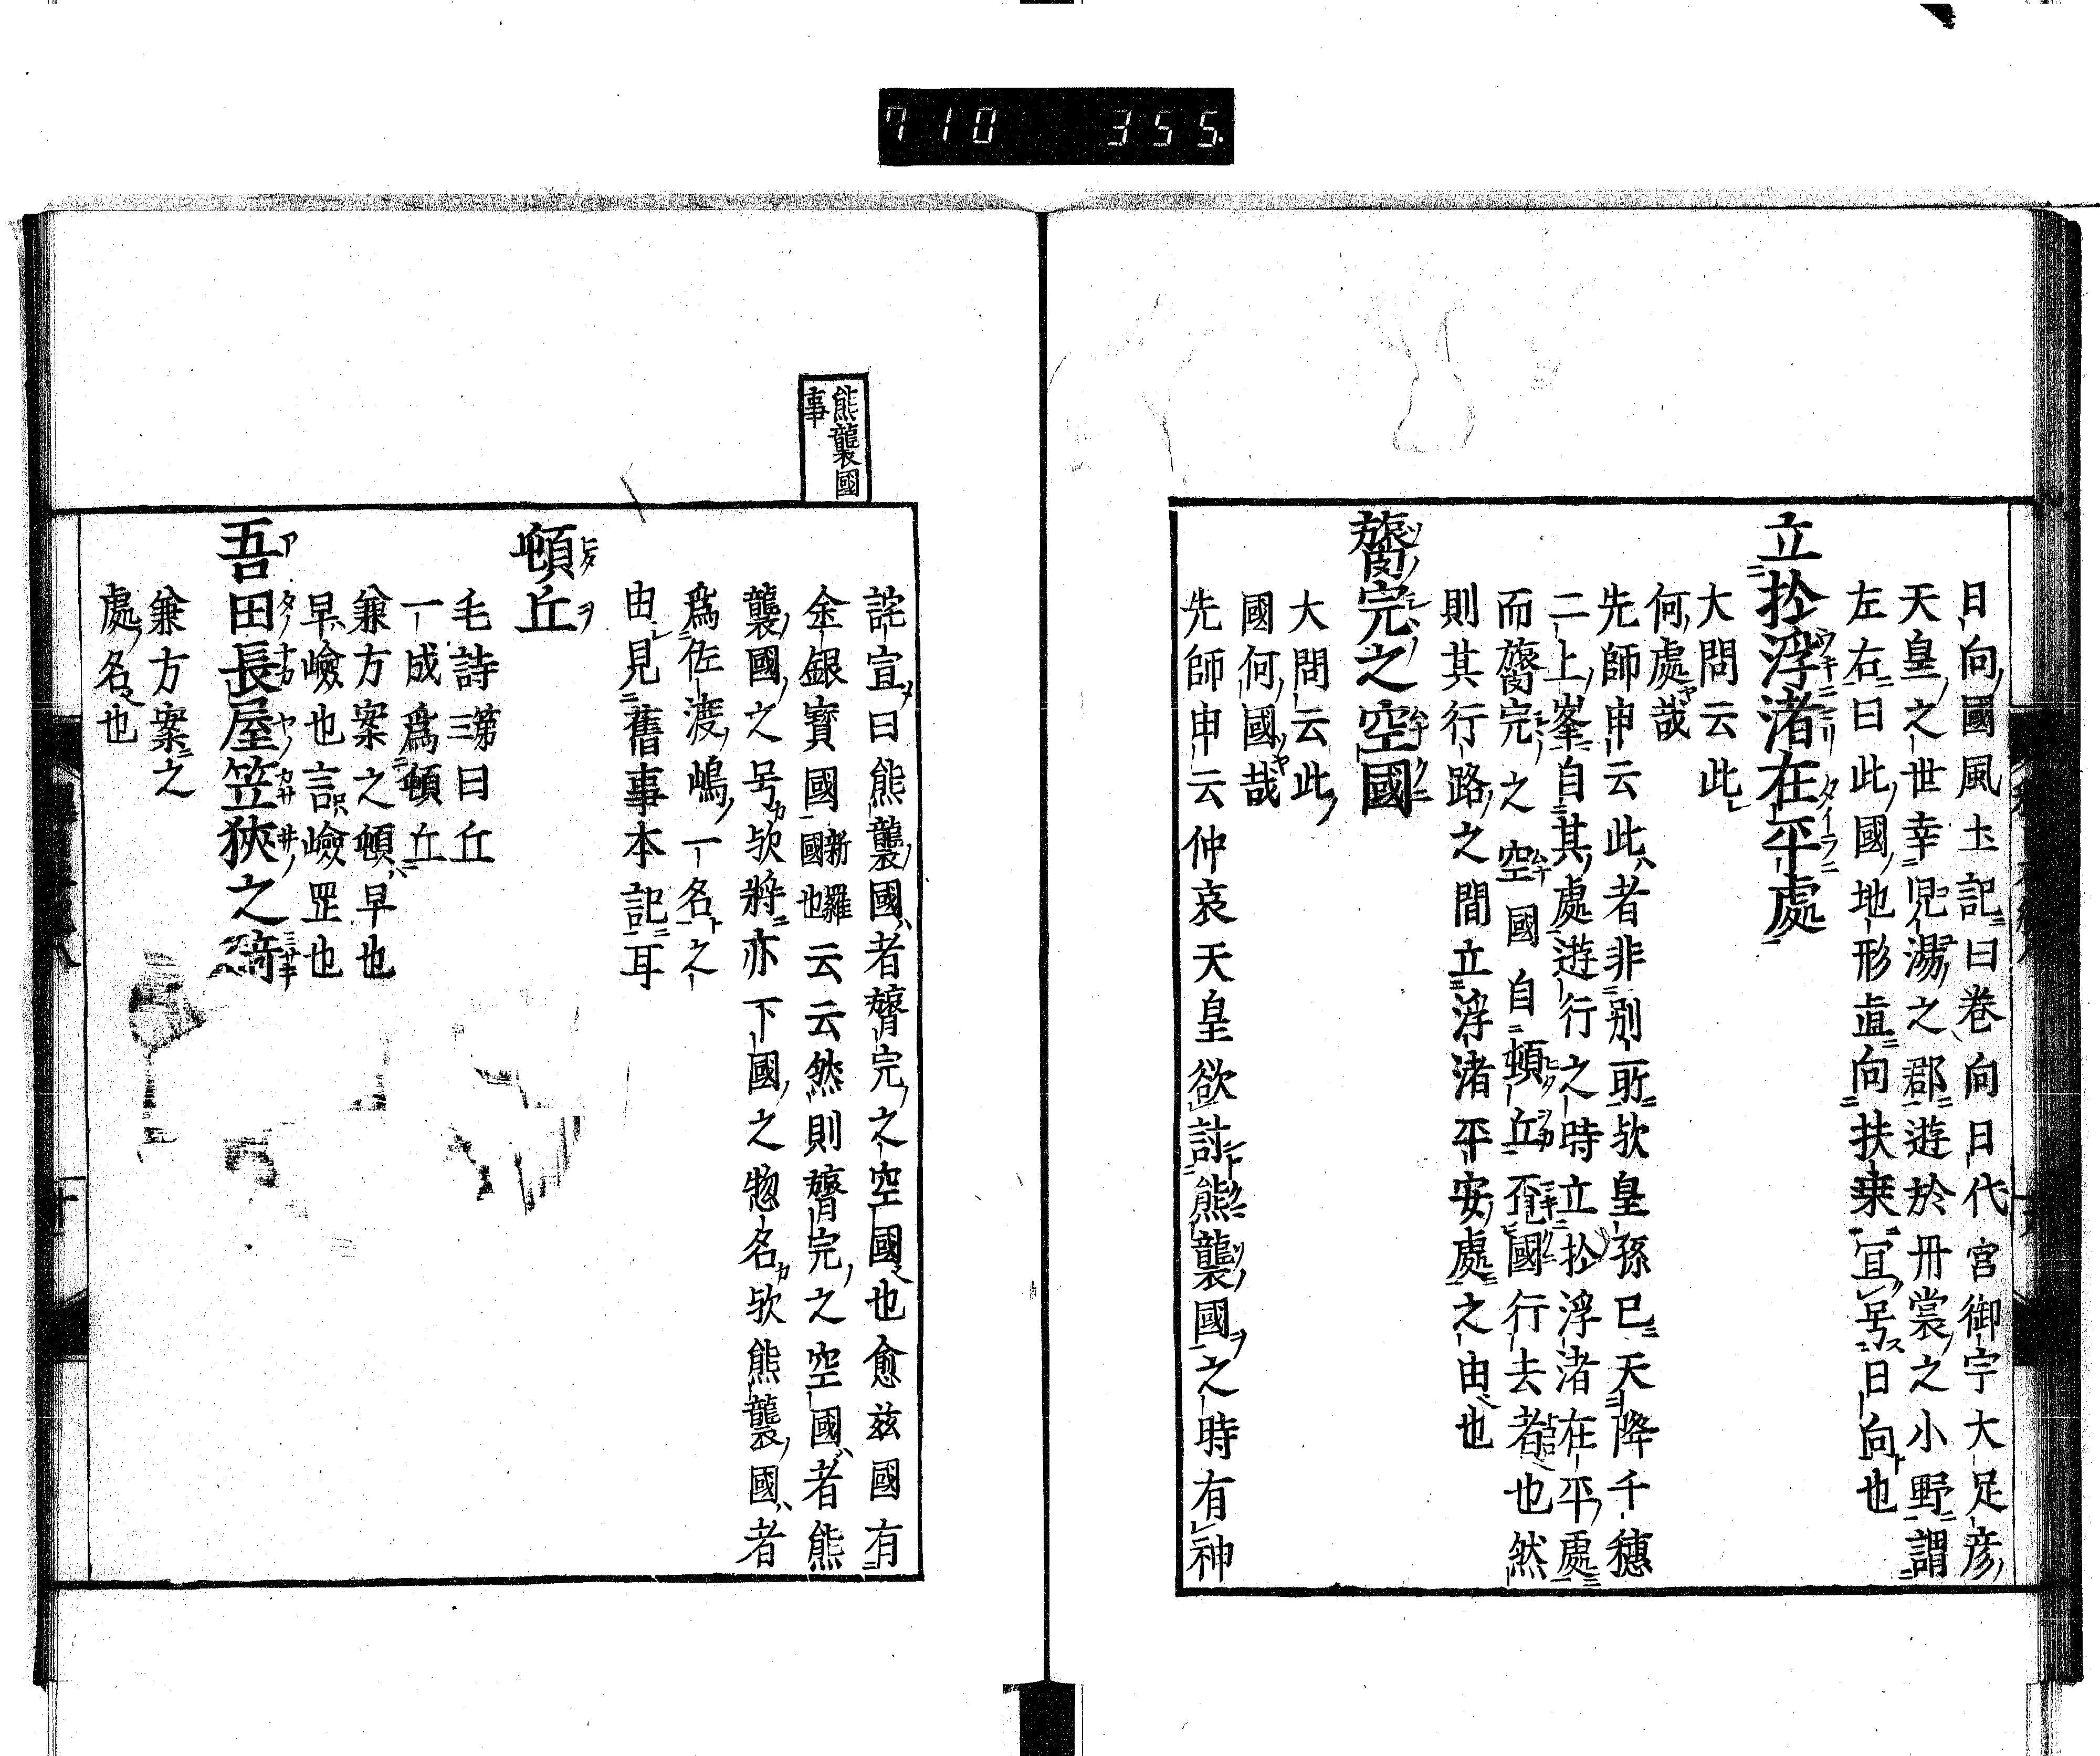 710 355.
日向國風土記曰卷向日代宮御宇大足彦
天皇之世幸兒湯之郡遊於丹裳之小野謂
左右曰此國地形直向扶桒冝号日向也
立於浮渚在平處
大問云此
何處哉
先師申云此者非别所欤皇孫已天降千穗
二上峯自其處遊行之時立於浮渚在平處
而膂完之空國自頓丘覔國行去者也然
則其行路之間立浮渚平安處之由也
膂完之空國
大問云此
國何國哉
先師申云仲哀天皇欲討熊襲國之時有神
熊襲國
事
詫宣曰熊襲國者膂完之空國也愈兹國有
金銀寳國新羅國也云云然則膂完之空國者熊
襲國之号欤將亦下國之惣名欤熊襲國者
爲佐渡嶋一名之
由見舊事本記耳
頓丘
毛詩第三曰丘
一成爲頓丘
兼方案之頓早也
早嶮也言嶮罡也
吾田長屋笠狹之碕
兼方案之
處名也